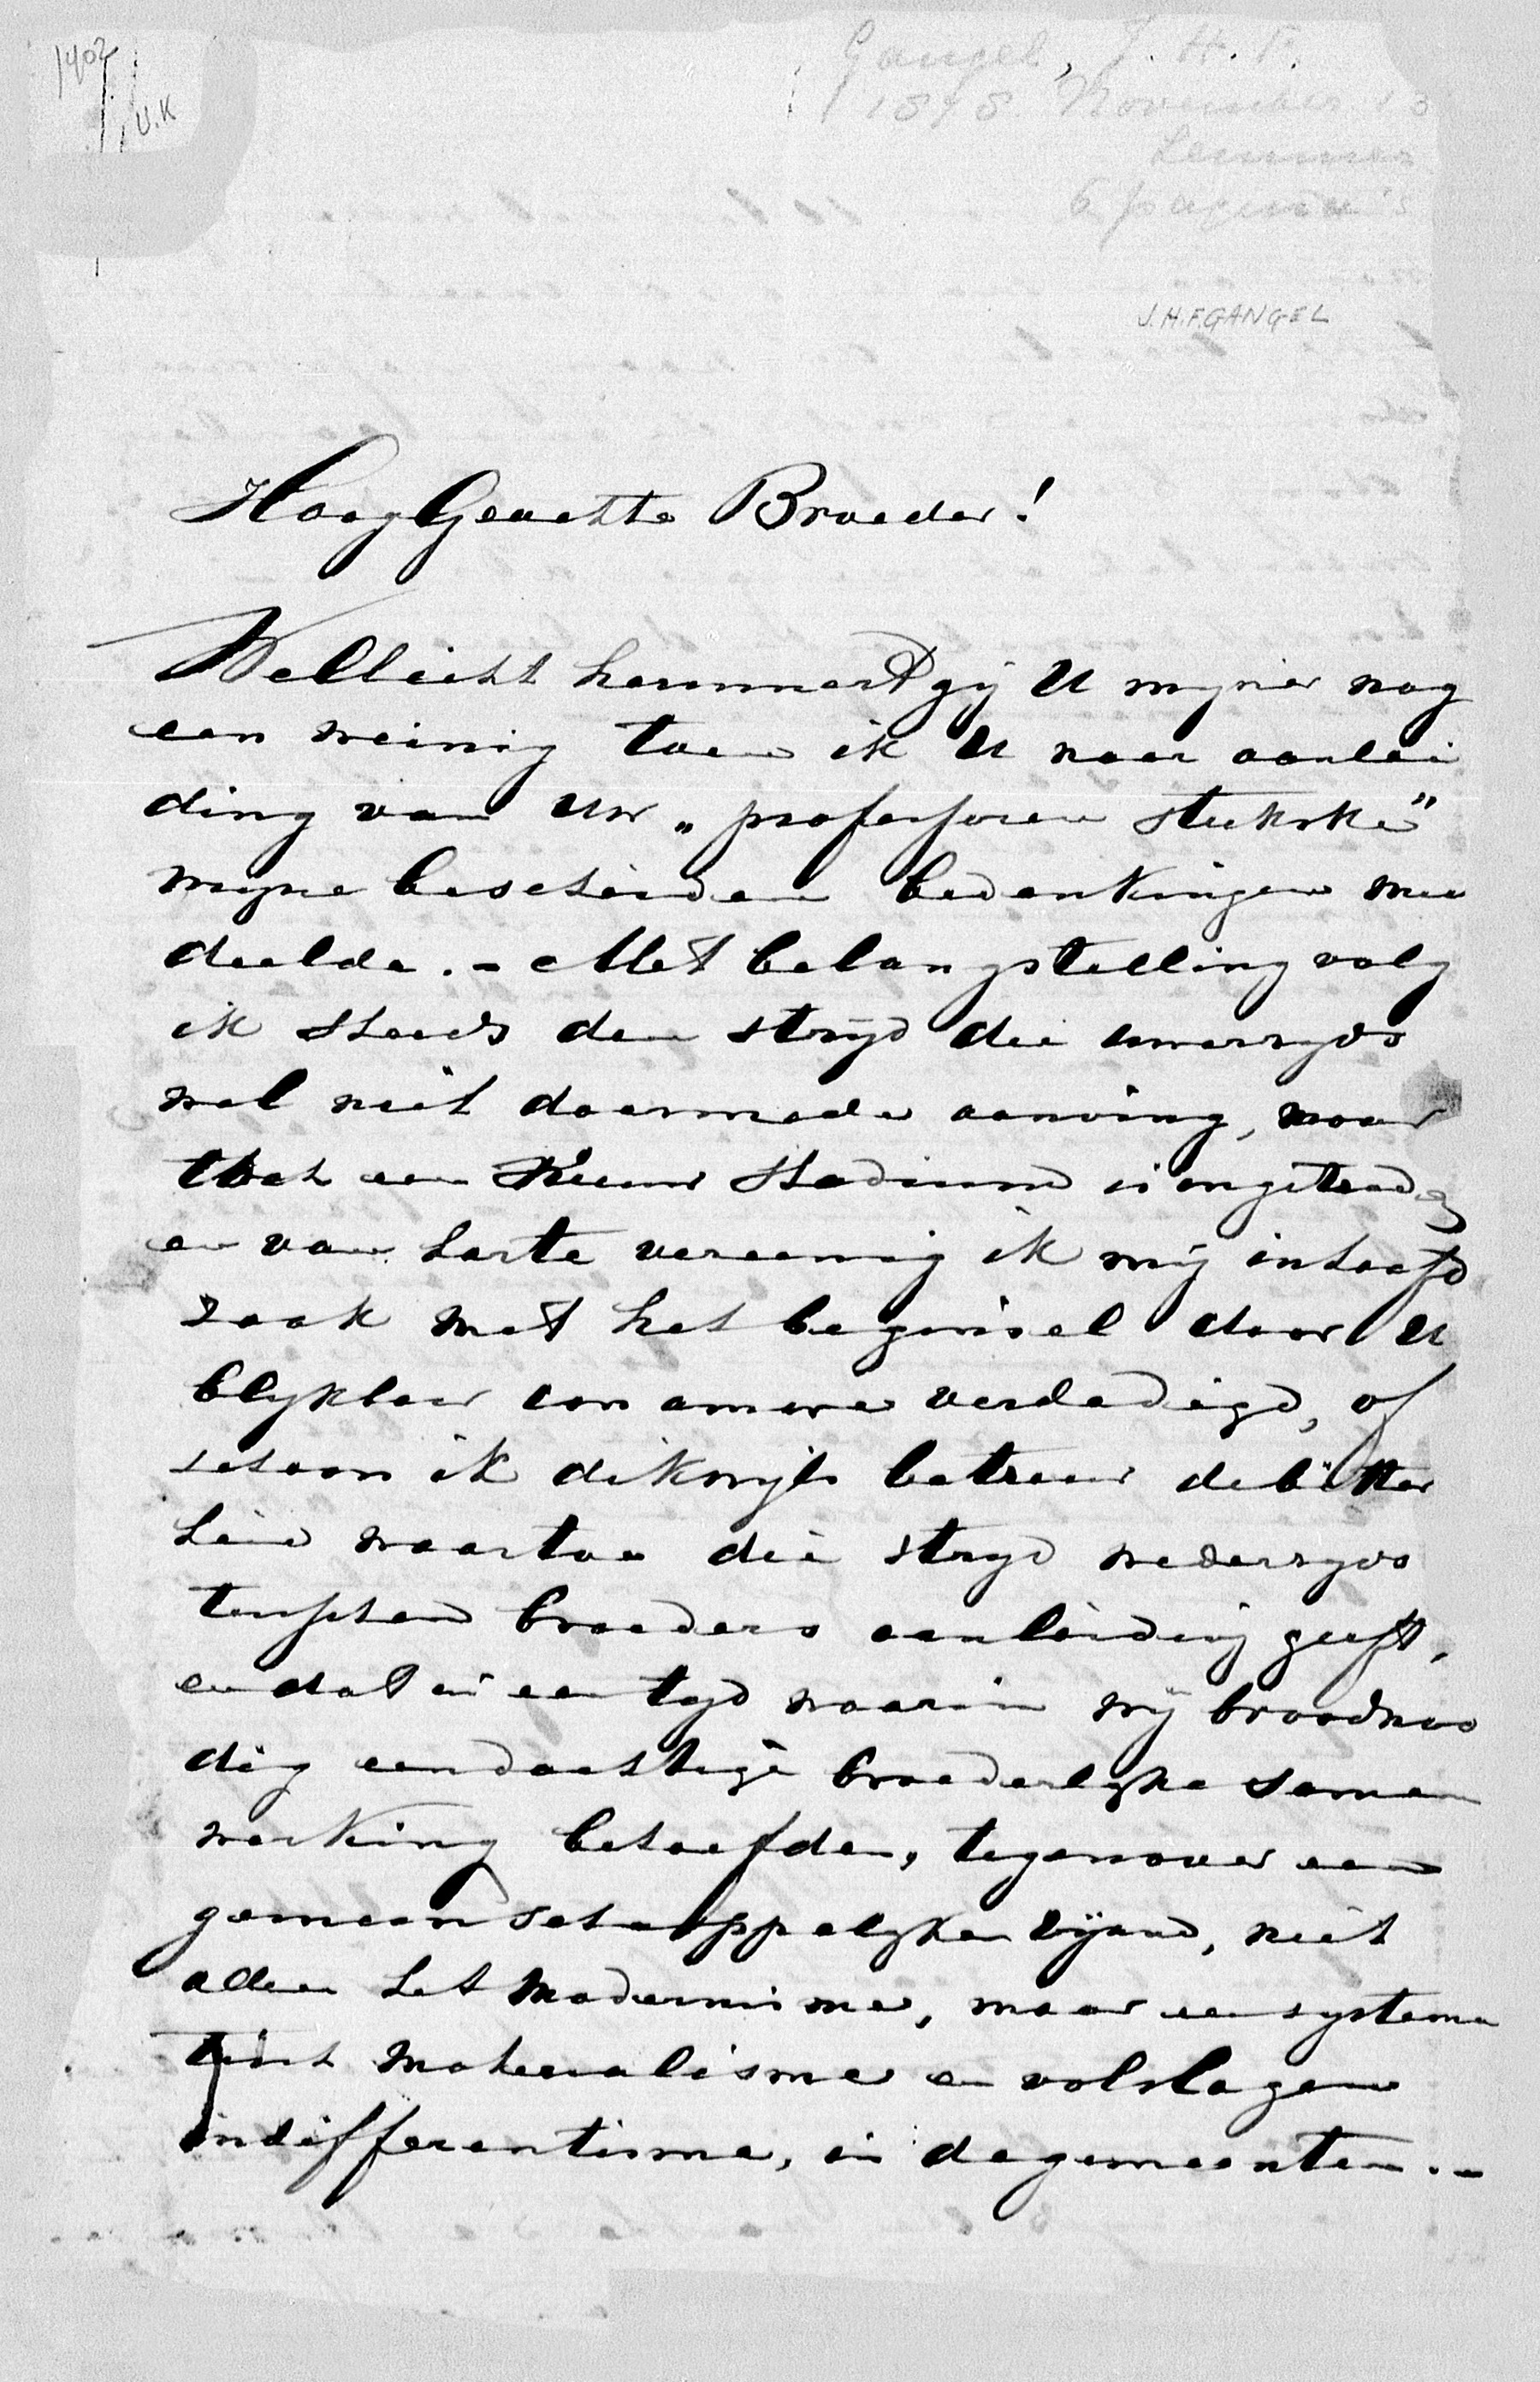 1402
U.K
Gangel, J. H. F.
1878 November 13
Lemmer
6 pagina's
J.H.F.GANGEL
HoogGeachte Broeder!
Wellicht herinnert gij U mijner nog
een weinig toen ik U naar aanlei
ding van Uw „professoren stukske"
mijne bescheiden bedenkingen mee
deelde. - Met belangstelling volg
ik steeds den strijd die uwerzyds
wel niet daarmede aanving, maar
toch een Nieuw Stadium is ingetreden
en van harte vereenig ik mij in hoofd
zaak met het beginsel door U
blykbaar con amore verdedigd, of
schoon ik dikwijls betreur de bitter
heid waartoe die stryd wederzyds
tusschen broeders aanleiding geeft,
en dat in een tyd waarin wij broodnoo
dig eendachtige broederlyke samen
werking behoefden, tegenover een
gemeenschappelyken vijand, niet
alleen het Modernisme, maar een systema
tisch materialisme en volslagen
indifferentisme, in de gemeenten. -